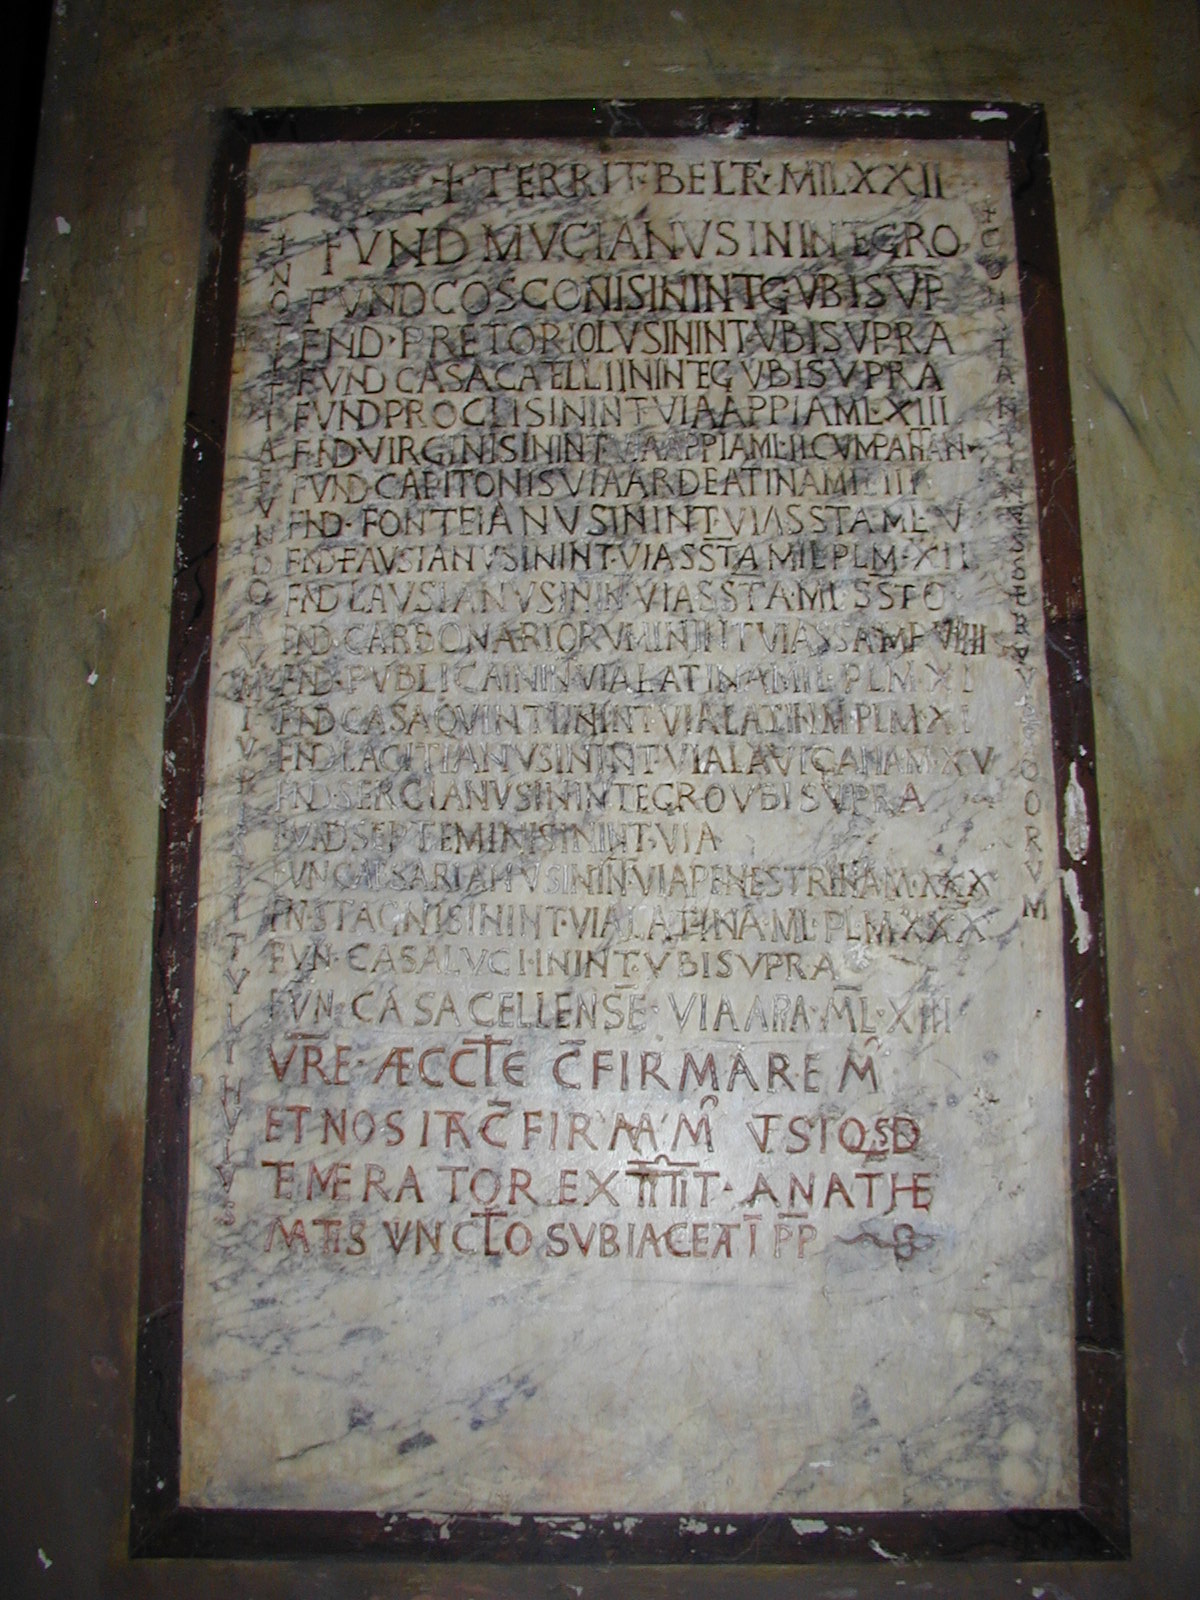 + TERRIT·BELT·MIL·XXII
FUND MUCIANUS IN INTEGRO
FUND COSCONIS IN INTG UBI SUP
FND·PRETORIOLUS IN INT·UBI SUPRA
FUND CASA CAELLII IN INTEG UBI SUPRA
FUND PROCLIS IN INT VIA APPIA ML·XIII
FND·VIRGINIS IN INT APPIA ML·II CUM
FUND CAPITONIS VIA ARDEATINA MIL III
FND·FONTEIANUS IN INT·VIA SSTA·ML V
FND FAUSIANUS IN INT·VIA SSTA MIL PLM·XII
FND LAUSIANUS IN IN·VIA SSTA·ML SSTO
FND·CARBONARIORUM IN INT VIA SSA
FND·PUBLICA IN IN·VIA LATINA MIL·PLM·XI
FND CASA QUINTI IN INT VIA LATIN M·PLM·XI
FND LACITIANUS IN INT·VIA LAVICANA M·XV
FND SERGIANUS IN INTEGRO UBI SUPRA
FUND SEPTEMINIS IN INT·VIA
FUN CAESARIANUS IN IN·VIA PENESTRINA M·XXX
FN·STAGNIS IN INT·VIA LATINA·ML·PLM·XXX
FUN·CASA LUCI·IN INT·UBI SUPRA
FUN·CASA CELLENSE·VIA APA·ML·XIII
VRE·ÆCCTE CFIRMAREM
ET NOS ITA CFIRMAM VT SI QSD
TEMERATOR EXTITIT·ANATHE
MATIS VNCTO SVBIACEAT I PP
+ NOTITIA FUNDORUM IURIS TITULI HUIUS